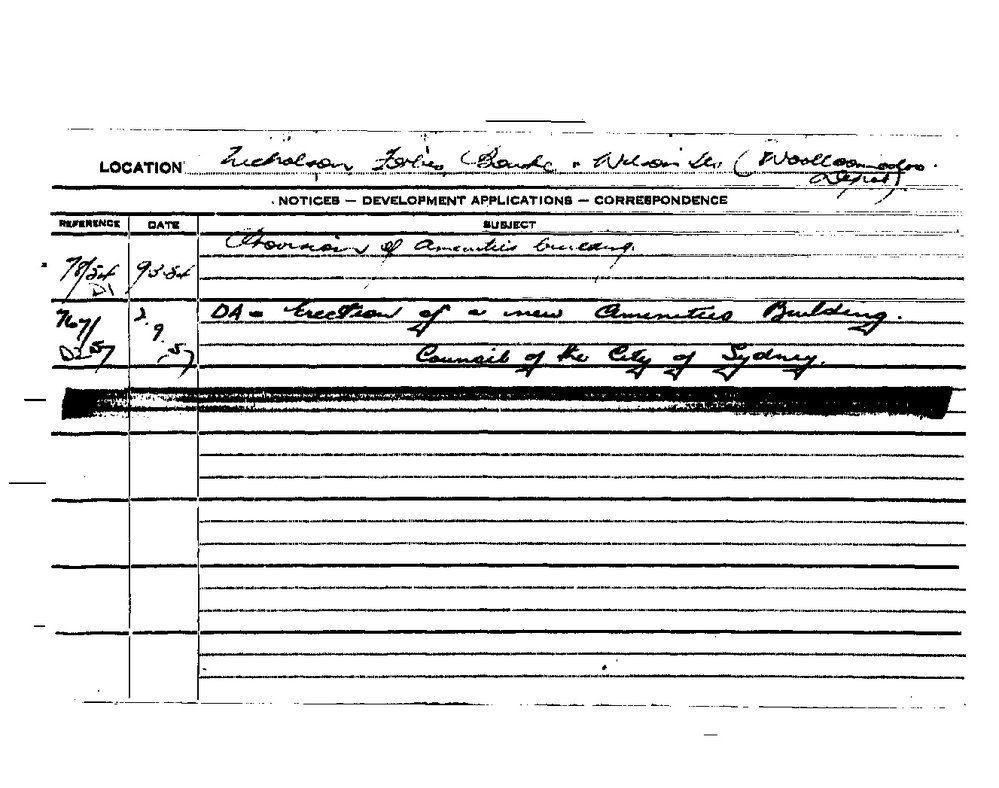 LOCATION Nicholson, Forbes, Bourke & Wilson Sts. (Woolloomooloo
Depot)
NOTICES — DEVELOPMENT APPLICATIONS — CORRESPONDENCE
REFERENCE DATE SUBJECT
Provision of amenities building.
78/54 9 3 54
D1
767/ 2. DA - Erection of a new Amenities Building.
9
57 .57 Council of the City of Sydney.